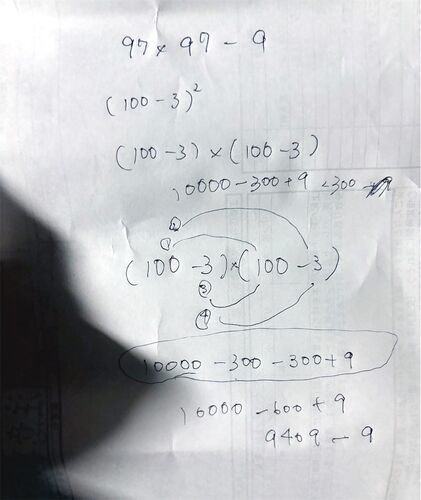 97 × 97 - 9
(100 - 3)²
(100 - 3) × (100 - 3)
10000 - 300 + 9 - 300
②
①
(100 - 3) × (100 - 3)
③
④
10000 - 300 - 300 + 9
10000 - 600 + 9
9409 - 9